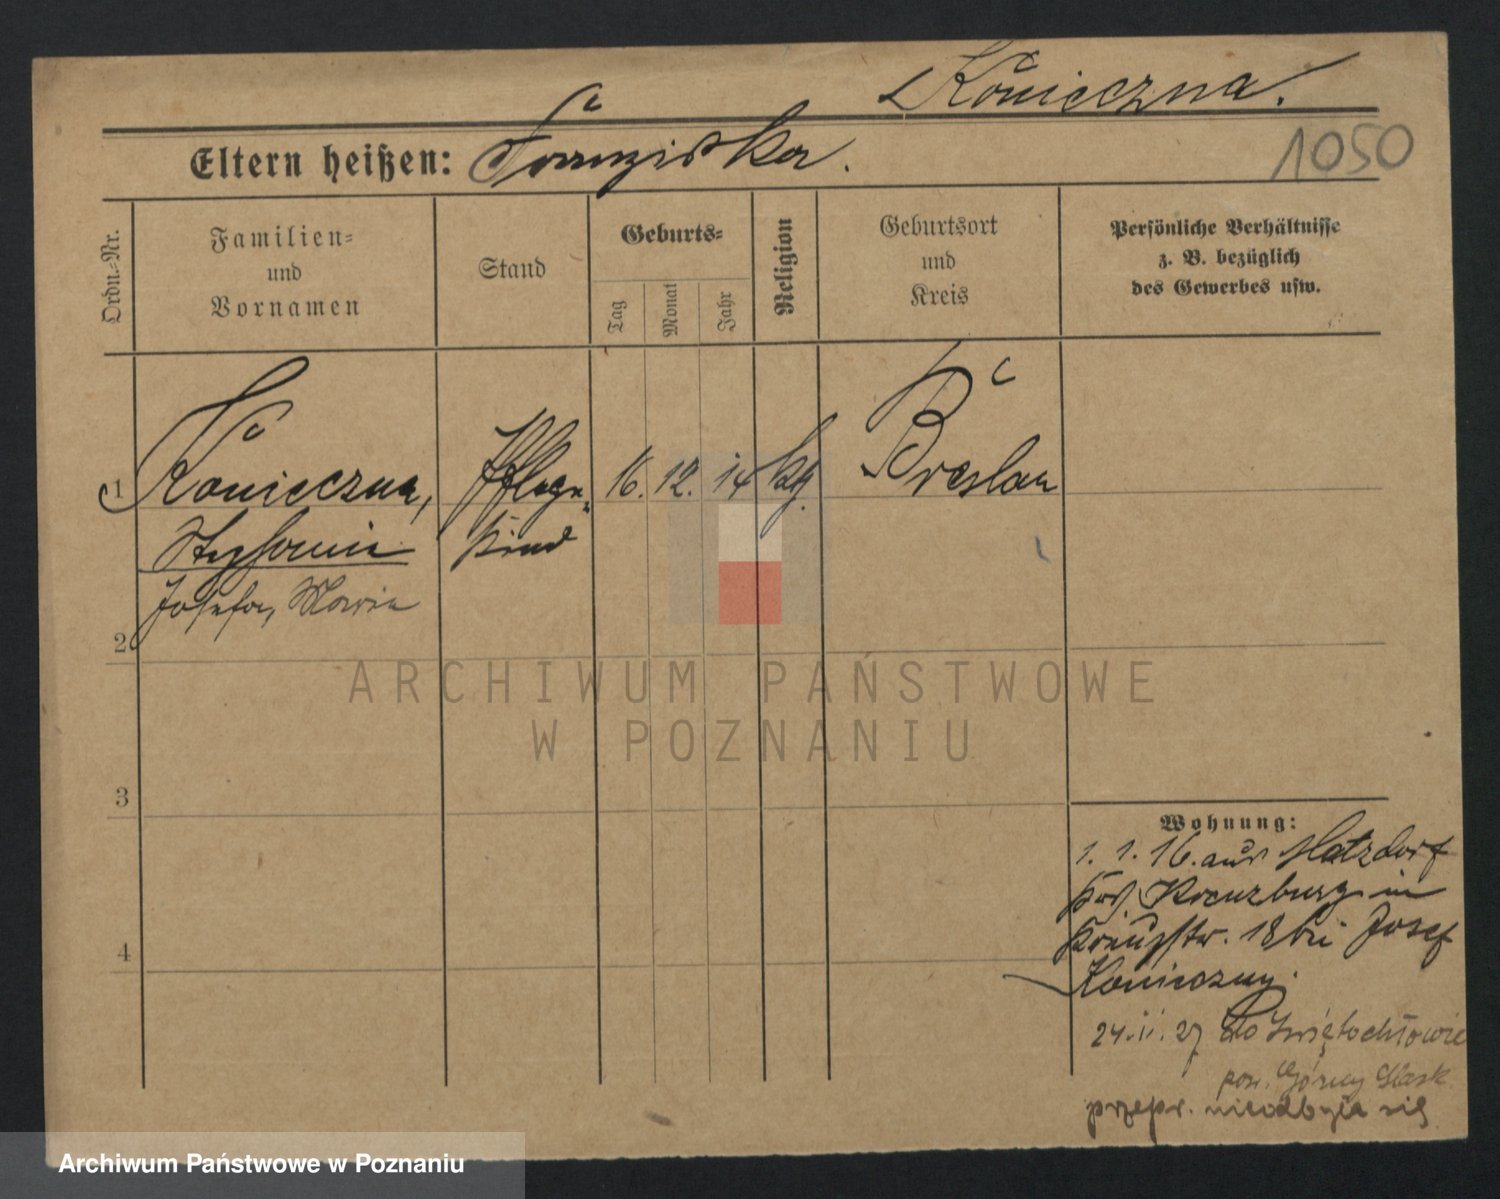 Konieczna.
Eltern heißen: Franziska.
1050
Ordn.-Nr.
Familien-
und
Vornamen
Stand
Geburts-
Tag
Monat
Jahr
Religion
Geburtsort
und
Kreis
Persönliche Verhältnisse
z. B. bezüglich
des Gewerbes usw.
1 Konieczna, Pflege- 16. 12. 14 kg. Breslau
Stefanie kind
Josefa, Maria
2
3
4
Wohnung:
1. 1. 16. aus Matzdorf
Krs. Kreuzburg in
Kreuzstr. 18 bei Josef
Konieczny.
24.II.27 do Świętochłowic
pow. Górny Śląsk
przepr. nieodbyła się
ARCHIWUM PAŃSTWOWE
W POZNANIU
Archiwum Państwowe w Poznaniu